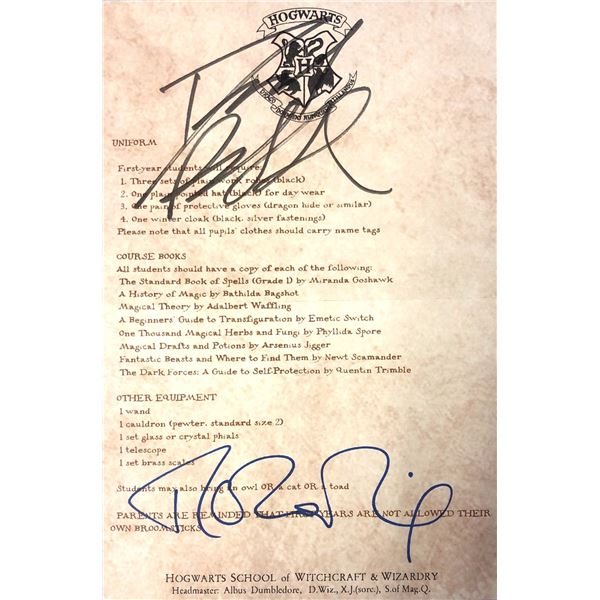 HOGWARTS
UNIFORM
First-year students will require:
1. Three sets of plain work robes (black)
2. One plain pointed hat (black) for day wear
3. One pair of protective gloves (dragon hide or similar)
4. One winter cloak (black, silver fastenings)
Please note that all pupils' clothes should carry name tags
COURSE BOOKS
All students should have a copy of each of the following:
The Standard Book of Spells (Grade 1) by Miranda Goshawk
A History of Magic by Bathilda Bagshot
Magical Theory by Adalbert Waffling
A Beginners' Guide to Transfiguration by Emetic Switch
One Thousand Magical Herbs and Fungi by Phyllida Spore
Magical Drafts and Potions by Arsenius Jigger
Fantastic Beasts and Where to Find Them by Newt Scamander
The Dark Forces: A Guide to Self-Protection by Quentin Trimble
OTHER EQUIPMENT
1 wand
1 cauldron (pewter, standard size 2)
1 set glass or crystal phials
1 telescope
1 set brass scales
Students may also bring an owl OR a cat OR a toad
PARENTS ARE REMINDED THAT FIRST YEARS ARE NOT ALLOWED THEIR
OWN BROOMSTICKS
HOGWARTS SCHOOL of WITCHCRAFT & WIZARDRY
Headmaster: Albus Dumbledore, D.Wiz., X.J.(sorc.), S.of Mag.Q.